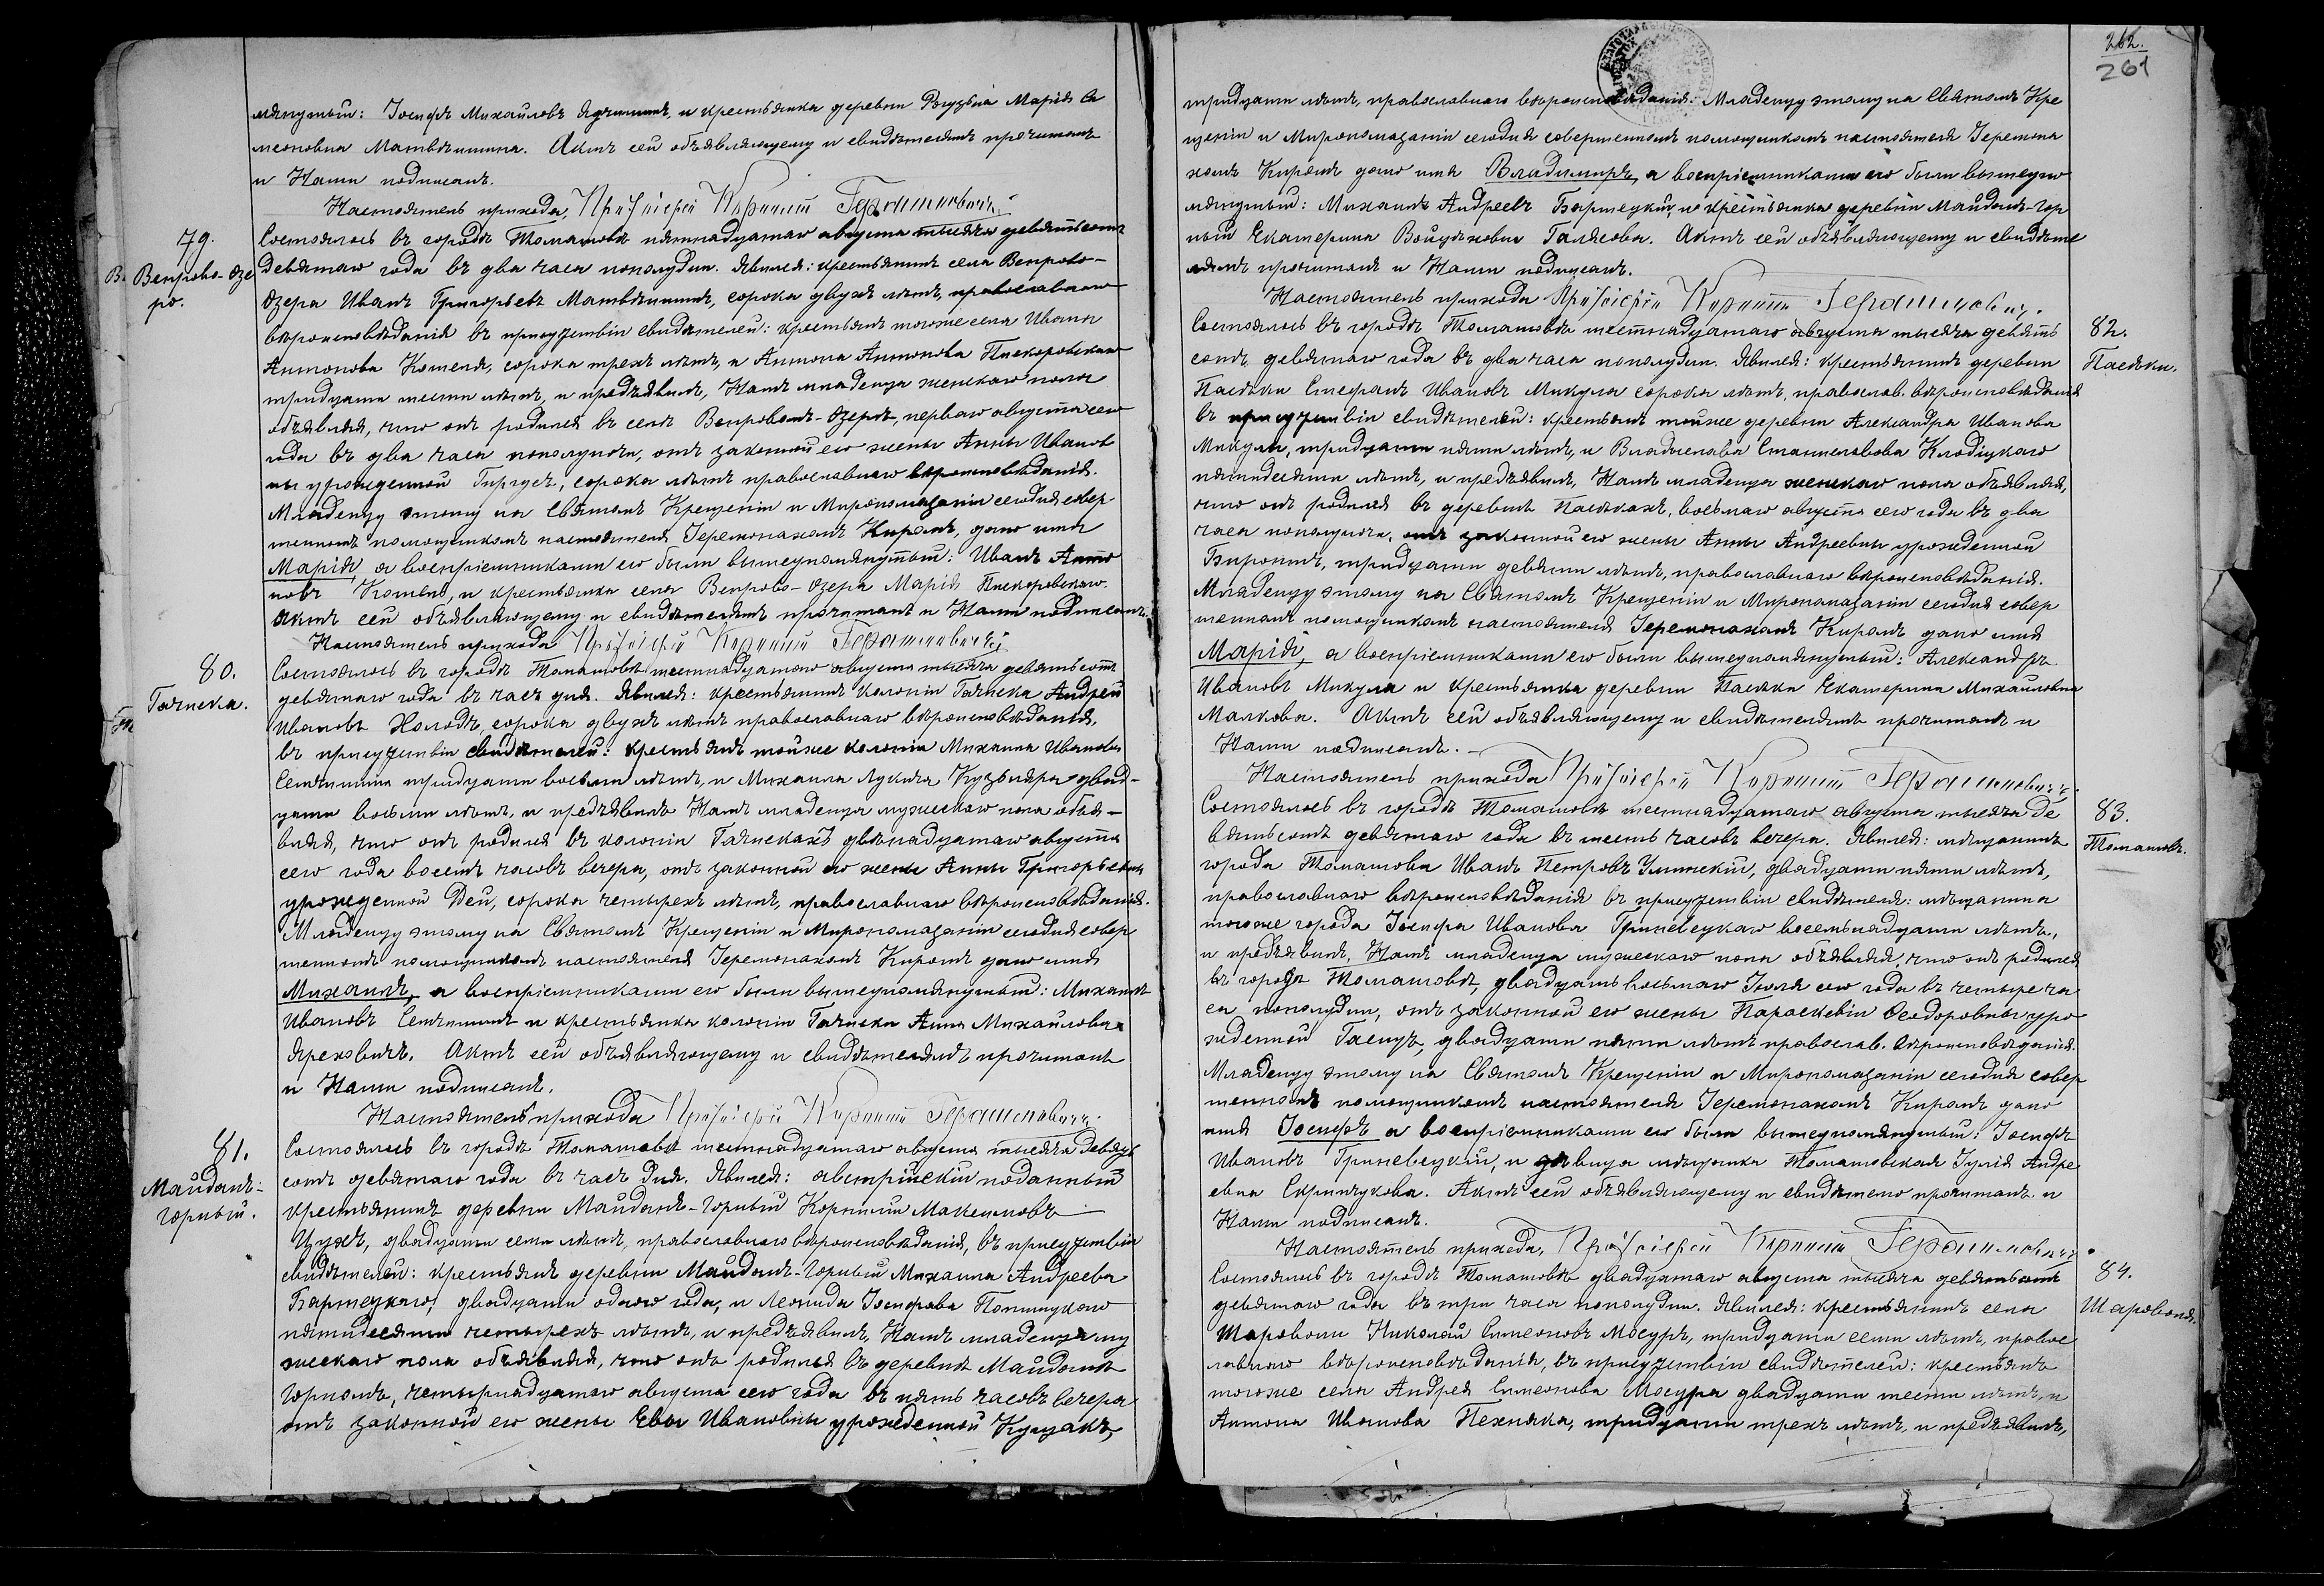 мянутый: Іосифъ Михайловъ и крестьянка деревни Марія Си
меоновна Матвѣишина. Актъ сей объявляющему и свидѣтелямъ прочитанъ
и Нами подписанъ.
Настоятель прихода, Протоіерей Корнилій
79.
Венрово-Озе
ро.
Состоялось въ городѣ Томашовѣ пятнадцатаго августа тысяча девятьсотъ
девятаго года въ два часа пополудни. Явился: крестьянинъ села Венрово-
Озера Иванъ Григорьевъ Матвѣишинъ, сорока двухъ лѣтъ, православнаго
вѣроисповѣданія въ присутствіи свидѣтелей: крестьянъ тогоже села Ивана
Антонова Комеля, сорока трехъ лѣтъ, и Антона Антонова Пискоровскаго
тридцати шести лѣтъ, и предъявилъ, Намъ младенца женскаго пола
объявляя, что онъ родился въ селѣ Венровомъ-Озерѣ, перваго августа сего
года въ два часа пополуночи, отъ законной его жены Анны Иванов
ны урожденной Гиргусъ, сорока лѣтъ православнаго вѣроисповѣданія.
Младенцу этому на Святомъ Крещеніи и Миропомазаніи сегодня совер
шенномъ помощникомъ настоятеля Іеремонахомъ Киромъ, дано имя
Марія, а воспріемниками его были вышеупомянутый: Иванъ Анто
новъ Комель, и крестьянка села Венрово-Озера Марія Пискоровскаго.
Актъ сей объявляющему и свидѣтелямъ прочитанъ и Нами подписанъ.
Настоятель прихода Протоіерей Корнилій
80.
Галиска.
Состоялось въ городѣ Томашовѣ шестнадцатаго августа тысяча девятьсотъ
девятаго года въ часъ дня. Явился: крестьянинъ колоніи Андрей
Ивановъ Холодъ, сорока двухъ лѣтъ православнаго вѣроисповѣданія,
въ присутствіи свидѣтелей: крестьянъ тойже колоніи Михаила Иванова
тридцати восьми лѣтъ, и Михаила Лукича Кузьняра двад-
цати восьми лѣтъ, и предъявилъ Намъ младенца мужескаго пола объя-
вляя, что онъ родился въ колоніи двѣнадцатаго августа
сего года восемъ часовъ вечера, отъ законной его жены Анны Григорьевны
урожденной Дец, сорока четырехъ лѣтъ, православнаго вѣроисповѣданія.
Младенцу этому на Святомъ Крещеніи и Миропомазаніи сегодня совер
шенномъ помощникомъ настоятеля Іеремонахомъ Киромъ дано имя
Михаилъ, а воспріемниками его были вышеупомянутый: Михаилъ
Ивановъ и крестьянка колоніи Анна Михайлова
Яреховичъ. Актъ сей объявляющему и свидѣтелямъ прочитанъ
и Нами подписанъ.
Настоятель прихода Протоіерей Корнилій
81.
Майданъ-
горный.
Состоялось въ городѣ Томашовѣ шестнадцатаго августа тысяча девять
сотъ девятаго года въ часъ дня. Явился: австрійскій подданный
крестьянинъ деревни Майданъ-Горный Корнилій Максимовъ
Цухъ, двадцати семи лѣтъ, православнаго вѣроисповѣданія, въ присутствіи
свидѣтелей: крестьянъ деревни Майданъ-Горный Михаила Андреева
Бартецкаго, двадцати одного года, и Леонида Іосифова
пятидесяти четырехъ лѣтъ, и предъявилъ, Намъ младенца му
жескаго пола объявляя, что онъ родился въ деревнѣ Майданѣ
Горномъ, четырнадцатаго августа сего года въ пять часовъ вечера
отъ законной его жены Евы Ивановны урожденной Куцакъ,
262.
261
тридцати лѣтъ, православнаго вѣроисповѣданія. Младенцу этому на Святомъ Кре
щеніи и Миропомазаніи сегодня совершенномъ помощникомъ настоятеля Іеремона
хомъ Киромъ дано имя Владимиръ, а воспріемниками его были вышеупо
мянутый: Михаилъ Андреевъ Бартецкій, и крестьянка деревни Майданъ-Гор
ный Екатерина Войцѣховна Галясова. Актъ сей объявляющему и свидѣте
лямъ прочитанъ и Нами подписанъ.
Настоятель прихода Протоіерей Корнилій
82.
Пасѣки.
Состоялось въ городѣ Томашовѣ шестнадцатаго августа тысяча девять
сотъ девятаго года въ два часа пополудни. Явился: крестьянинъ деревни
Пасѣки Стефанъ Ивановъ Микула сорока лѣтъ, православ. вѣроисповѣданія
въ присутствіи свидѣтелей: крестьянъ тойже деревни Александра Иванова
Микулы, тридцати пяти лѣтъ, и Владислава Станиславова
пятидесяти лѣтъ, и предъявилъ, Намъ младенца женскаго пола объявляя,
что онъ родился въ деревнѣ Пасѣкахъ, восьмаго августа сего года въ два
часа пополуночи, отъ законной его жены Анны Андреевны урожденной
Биронтъ, тридцати девяти лѣтъ, православнаго вѣроисповѣданія.
Младенцу этому на Святомъ Крещеніи и Миропомазаніи сегодня совер
шенномъ помощникомъ настоятеля Іеремонахомъ Киромъ дано имя
Марія, а воспріемниками его были вышеупомянутый: Александръ
Ивановъ Микула и крестьянка деревни Пасѣки Екатерина Михайловна
Малкова. Актъ сей объявляющему и свидѣтелямъ прочитанъ и
Нами подписанъ.
Настоятель прихода Протоіерей Корнилій
83.
Томашовъ.
Состоялось въ городѣ Томашовѣ шестнадцатаго августа тысяча де
вятьсотъ девятаго года въ шесть часовъ вечера. Явился: мѣщанинъ
города Томашова Иванъ Петровъ двадцати пяти лѣтъ,
православнаго вѣроисповѣданія въ присутствіи свидѣтеля: мѣщанина
тогоже города Іосифа Иванова Гриневецкаго восемьнадцати лѣтъ,
и предъявилъ, Намъ младенца мужескаго пола объявляя, что онъ родился
въ городѣ Томашовѣ, двадцать восьмаго Іюля сего года въ четыре ча
са пополудни, отъ законной его жены Параскевіи Ѳеодоровны уро
жденной двадцати пяти лѣтъ православ. вѣроисповѣданія.
Младенцу этому на Святомъ Крещеніи и Миропомазаніи сегодня совер
шенномъ помощникомъ настоятеля Іеремонахомъ Киромъ дано
имя Іосифъ а воспріемниками его были вышеупомянутый: Іосифъ
Ивановъ Гриневецкій, и дѣвица мѣщанка Томашовская Юлія Андре
евна Скринчукова. Актъ сей объявляющему и свидѣтелю прочитанъ и
Нами подписанъ.
Настоятель прихода, Протоіерей Корнилій
84.
Шароволя.
Состоялось въ городѣ Томашовѣ двадцатаго августа тысяча девятьсотъ
девятаго года въ три часа пополудни. Явился: крестьянинъ села
Шароволи Николай Симеоновъ Мосуръ, тридцати семи лѣтъ, правос
лавнаго вѣроисповѣданія, въ присутствіи свидѣтелей: крестьянъ
тогоже села Андрея Симеонова Мосура двадцати шести лѣтъ, и
Антона Иванова Пехняка, тридцати трехъ лѣтъ, и предъявилъ,